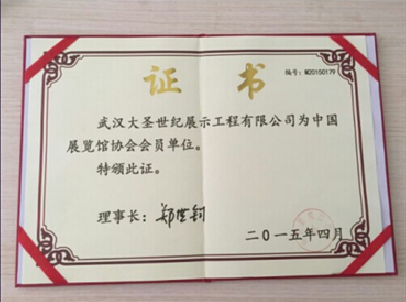 证 书
编号：M20150179
武汉大圣世纪展示工程有限公司为中国
展览馆协会会员单位。
特颁此证。
理事长：
二〇一五年四月